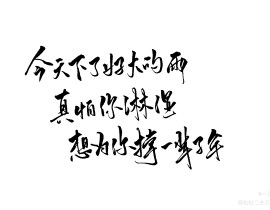 今天下了好大的雨
真怕你淋湿
想为你撑一辈子伞